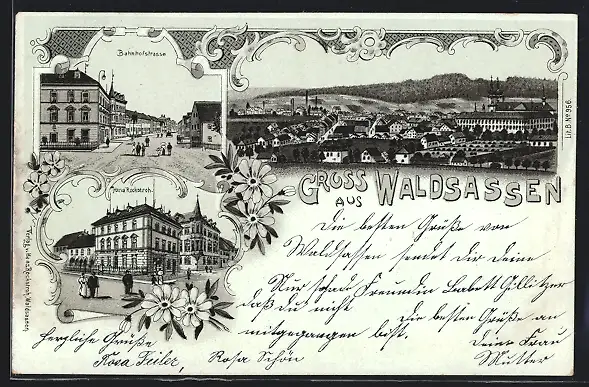 Bahnhofstrasse
Hans Rockstroh.
GRUSS
AUS
WALDSASSEN
Lit. B. Nº 956.
Verlag v. Hans Rockstroh, Waldsassen.
Die besten Grüße von
Waldsassen sendet dir deine
Freundin Babett Gillitzer
Nur schade
daß du nicht
mitgegangen bist.
Die besten Grüße an
deine Frau
Mutter
Herzliche Grüße
Rosa Feiler,
Rosa Schön